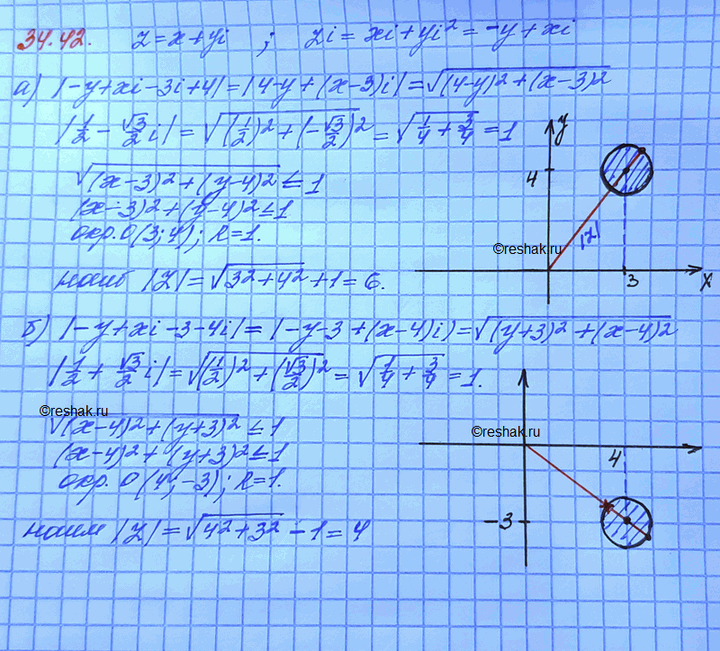 34.42. z=x+yi ; zi = xi+yi² = -y+xi
а) |-y+xi-3i+4|=|4-y+(x-3)i|=√((4-y)²+(x-3)²)
|1/2 - √3/2 i| = √((1/2)²+(-√3/2)²) = √(1/4+3/4) = 1
√((x-3)²+(y-4)²) ≤ 1
(x-3)²+(y-4)² ≤ 1
окр. O(3;4); R=1.
наиб |z| = √(3²+4²)+1=6.
y
4
|z|
©reshak.ru
3
x
б) |-y+xi-3-4i|=|-y-3+(x-4)i)=√((y+3)²+(x-4)²)
|1/2 + √3/2 i| = √((1/2)²+(√3/2)²) = √(1/4+3/4) = 1.
©reshak.ru
√((x-4)²+(y+3)²) ≤ 1
(x-4)²+(y+3)² ≤ 1
окр. O(4;-3); R=1.
наим |z| = √(4²+3²) - 1 = 4
©reshak.ru
4
-3